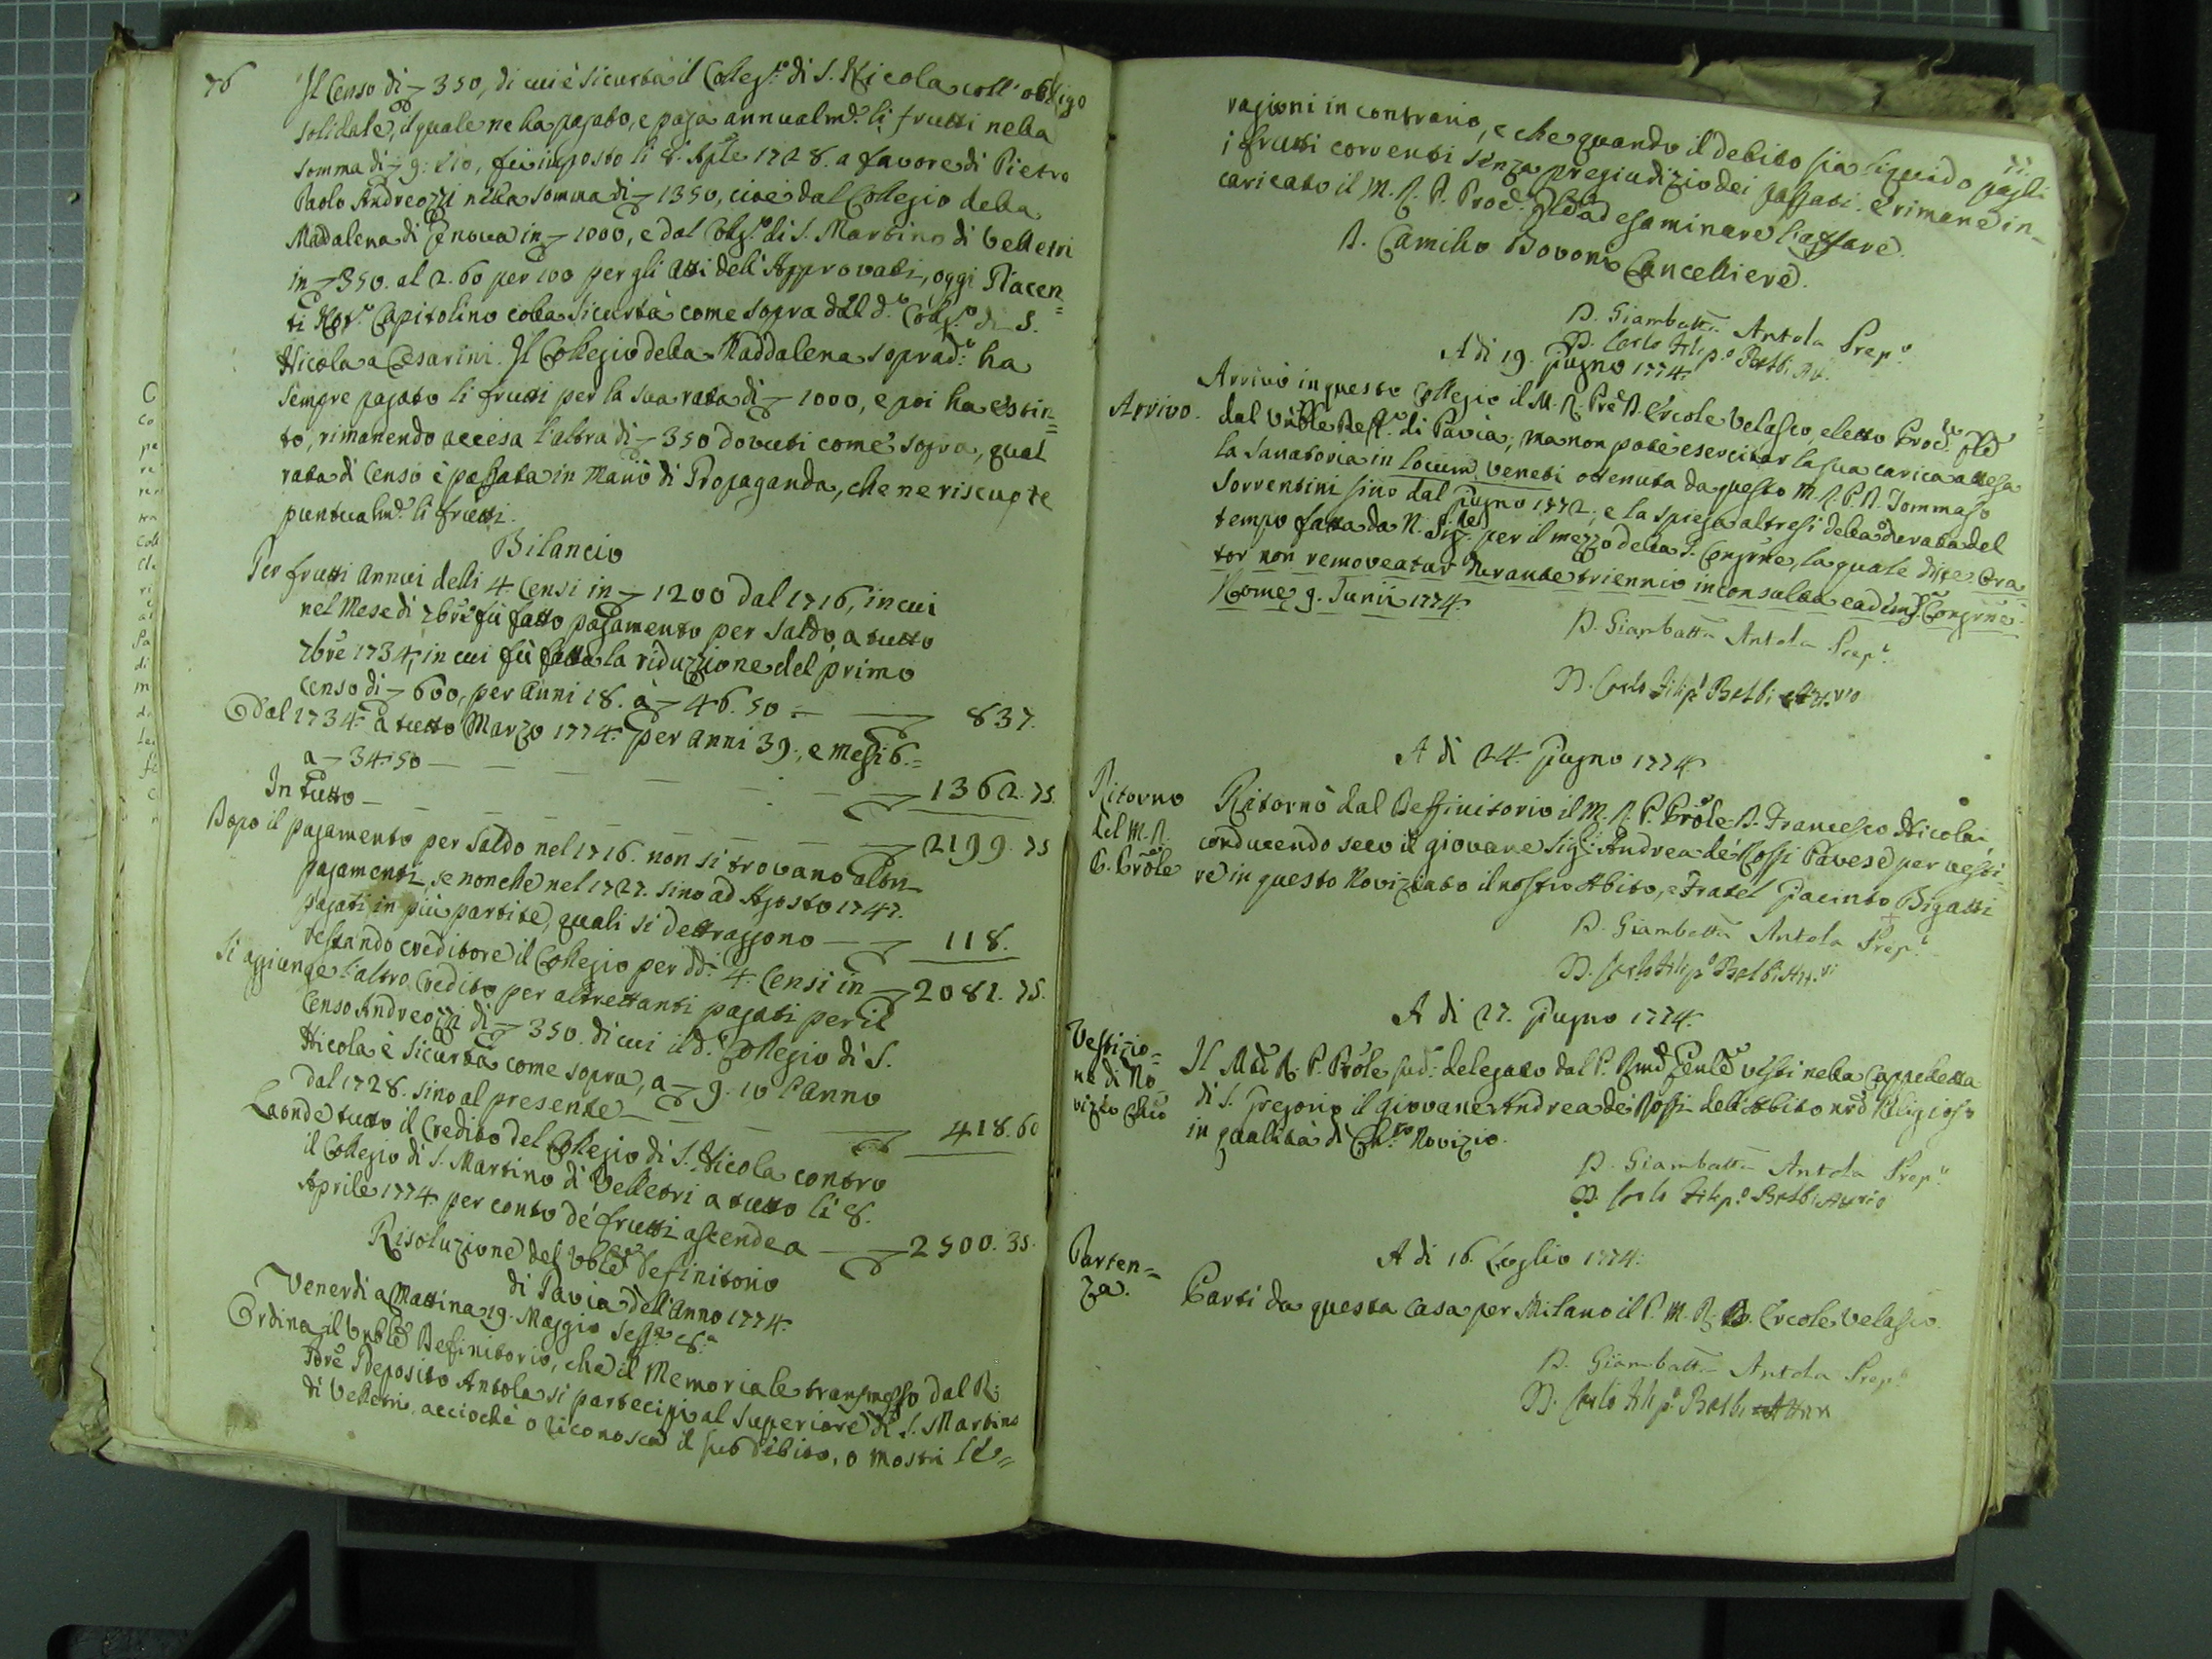 76
Il Censo di 350, di cui è sicurtà il Colleg.o di S. Nicola coll'obligo
solidale, il quale ne ha pagato, e paga annualm.e li frutti nella
somma di 9:10, fù imposto li 8. Aple 1728. a favore di Pietro
Paolo Andreozzi nella somma di 1350, cioè dal Collegio della
Maddalena di Genova in 1000, e dal Colleg.o di S. Martino di Velletri
in 350. al 2.60 per 100 per gli Atti dell'Approvati, oggi Piacen=
ti Not.o Capitolino colla sicurtà come sopra dal d.o Colleg.o di S.
Nicola a Cesarini. Il Collegio della Maddalena soprad.o ha
sempre pagato li frutti per la sua rata di 1000, e poi ha estin=
to, rimanendo accesa l'altra di 350 dovuti come sopra, qual
rata di Censo è passata in mano di Propaganda, che ne riscuote
puntualm.e li frutti.
Bilancio
Per frutti annui delli 4. Censi in 1200 dal 1716, in cui
nel Mese di 7bre fù fatto pagamento per saldo, a tutto
7bre 1734, in cui fù fatta la riduzzione del primo
censo di 600, per anni 18. à 46.50 — 837.
Dal 1734. a tutto Marzo 1774. per anni 39., e mesi 6.=
a 34.50 — 1362.75.
In tutto — 2199.75
Dopo il pagamento per saldo nel 1716. non si trovano altri
pagamenti, se non che nel 1727. sino ad Agosto 1747.
pagati in più partite, quali si dettraggono — 118.
restando creditore il Collegio per dd. 4. Censi in 2081.75.
Si aggiunge l'altro Credito per altrettanti pagati per il
Censo Andreozzi di 350. di cui il d.o Collegio di S.
Nicola è sicurtà come sopra, a 9.10 l'anno
dal 1728. sino al presente — 418.60
Laonde tutto il Credito del Collegio di S. Nicola contro
il Collegio di S. Martino di Velletri a tutto li 8.
Aprile 1774. per conto de' frutti ascende a — 2500.35.
Risoluzione del Vble Definitorio
di Pavia dell'Anno 1774.
Venerdi a Mattina 19. Maggio Sess. 8.a
Ordina il Vnble Definitorio, che il Memoriale trasmesso dal R.
Pdre Preposito Antola si partecipi al Superiore di S. Martino
di Velletri, acciochè o riconosca il suo debito, o mostri le=
77.
ragioni in contrario, e che quando il debito sia liquido paghi
i frutti correnti senza pregiudizio dei passati. E rimane in=
caricato il M. R. P. Proc. Gle ad esaminare l'affare.
D. Camillo Bovoni Cancelliere.
D. Giambatta Antola Prep.o
D. Carlo Filip.o Balbi Att.
A di 19. Giugno 1774.
Arrivo.
Arrivò in questo Collegio il M. R. Pre D. Ercole Velasco, eletto Proc. Gle
dal Vnble Deff.o di Pavia, ma non potè esercitar la sua carica attesa
la Sanatoria in locum Veneti ottenuta da questo M. R. P. D. Tommaso
Sorrentini sino dal Giugno 1772, e la spiega altresì della durata del
tempo fatta da N. Sig.re per il mezzo della S. Congrne, la quale dice: Ora=
tor non removeatur durante triennio inconsulta eadem S. Congrne.
Rome 9. Junii 1774.
D. Giambatta Antola Prep.o
D. Carlo Filip.o Balbi Att.rio
A di 24. Giugno 1774.
Ritorno
del M. R.
P. Prole
Ritornò dal Deffinitorio il M. R. P. Prole D. Francesco Nicolai,
conducendo seco il giovane Sig. Andrea de' Rossi Pavese per vesti=
re in questo Noviziato il nostro Abito, e Fratel Giacinto Bigatti
D. Giambatta Antola Prep.o
D. Carlo Filip.o Balbi Att.ri
A di 27. Giugno 1774.
Vestizio=
ne di No=
vizio Chco
Il Mto R. P. Prole sud. delegato dal P. Rmo Genle vestì nella Cappelletta
di S. Gregorio il giovane Andrea de Rossi dell'Abito nro Religioso
in qualità di Ch.co Novizio.
D. Giambatta Antola Prep.o
D. Carlo Filip.o Balbi Att.rio
A di 16. Luglio 1774.
Parten=
za.
Partì da questa casa per Milano il P. M. R. D. Ercole Velasco.
D. Giambatta Antola Prep.o
D. Carlo Filip.o Balbi